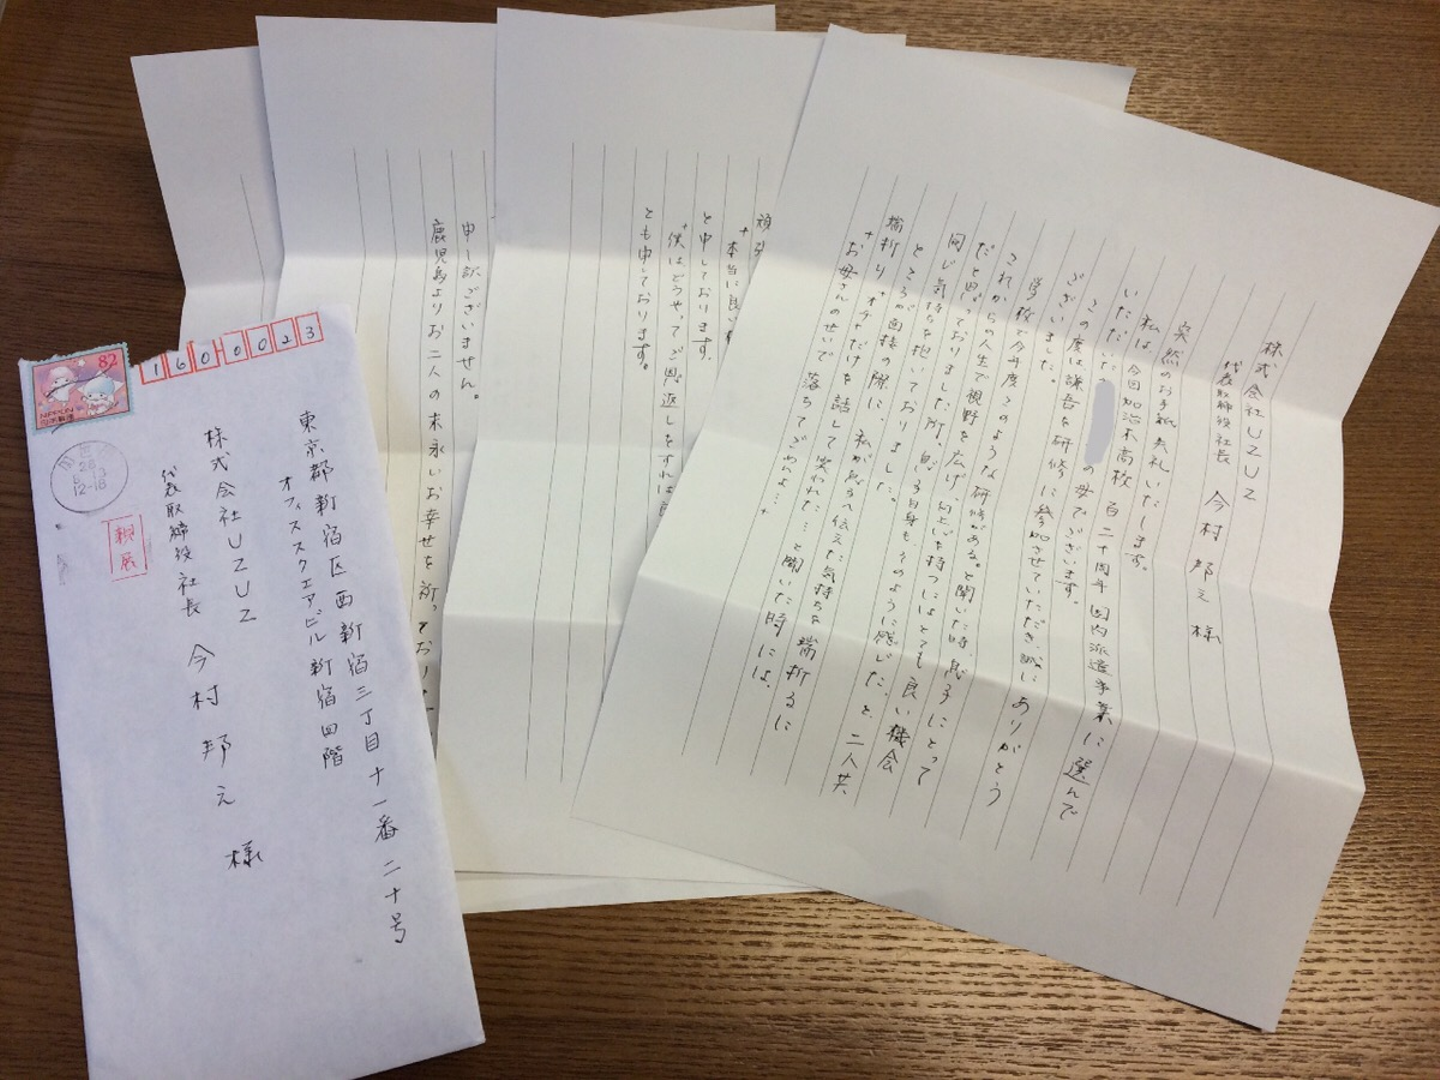 160 0023
東京都新宿区西新宿三丁目十一番二十号
オフィススクエアビル新宿四階
株式会社UZUZ
代表取締役社長 今村邦之様
親展
82
NIPPON
日本郵便
12-18
株式会社UZUZ
代表取締役社長 今村邦之様
突然のお手紙失礼いたします。
私は、今回加治木高校 百二十周年国内派遣事業に選んで
いただいた の母でございます。
この度は謙吾を研修に参加させていただき誠にありがとう
ございました。
学校で今年度このような研修がある。と聞いた時、息子にとって
これからの人生で視野を広げ、向上心を持つにはとても良い機会
だと思っておりました所。息子自身も、そのように感じた、と、二人共
同じ気持ちを抱いておりました。
ところが面接の際に、私が息子へ伝えた気持ちを端折るに
端折り"オチだけを話して笑われた…と聞いた時には、
"お母さんのせいで落ちてごめんよ…"
頑張
"本当に良い
と申しております。
"僕はどうやってご恩返しをすれば
とも申しております。
申し訳ございません。
鹿児島よりお二人の末永いお幸せを祈っており